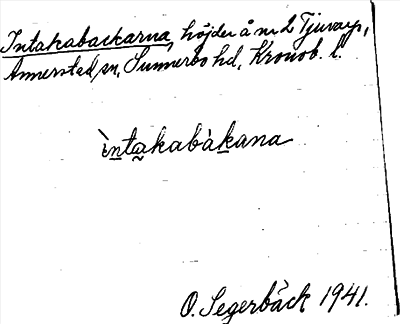 Intakabackarna, höjder å nr 2 Tjurarp,
Annerstad sn, Sunnerbo hd, Kronob. l.
ìntakabàkana
O. Segerbäck 1941.